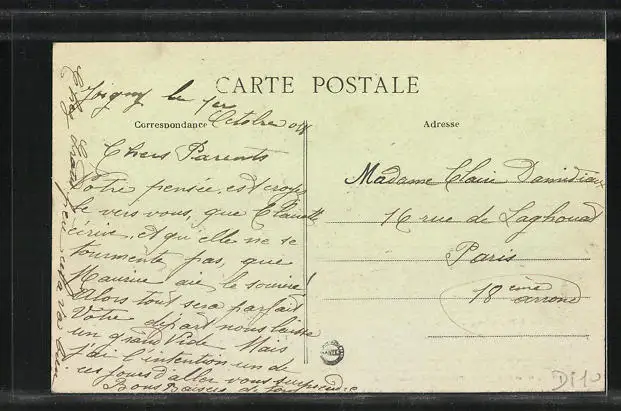 CARTE POSTALE
Correspondance
Adresse
Joigny le 1er
Octobre
Chers Parents
Notre pensée est
vers vous, que
écrive, et qu'elle ne se
tourmente pas, que
Maurice aie le sourire!
Alors tout sera parfait
Votre départ nous laisse
un grand vide Mais
j'ai l'intention un de
ces jours d'aller vous surprendre
Bons Baisers de tous
Madame Claire
16 rue de Laghouat
Paris
18 eme arrond